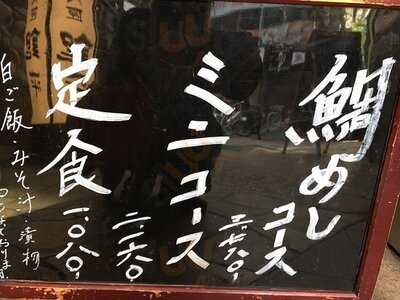 鯛めし
コース
三、七八〇、
ミニコース
二、一六〇、
定食
一、〇八〇、
白ご飯・みそ汁・漬物